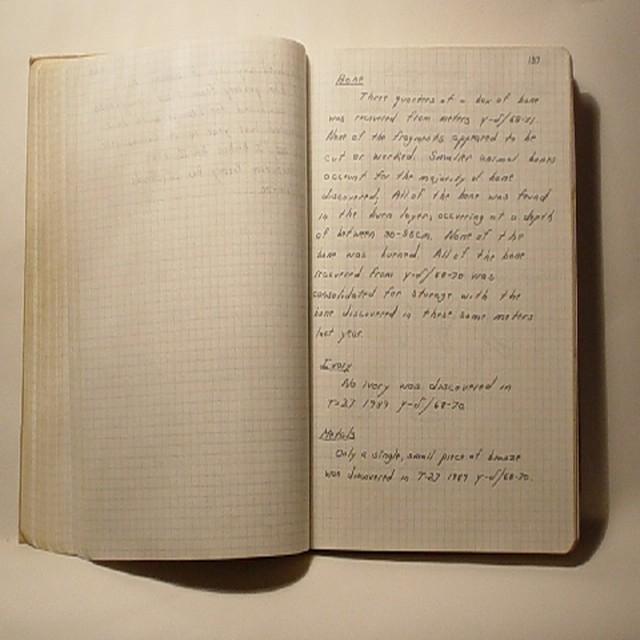 Bone
Three quarters of a box of bone
was recovered from meters
None of the fragments appeared to be
cut or worked. Smaller animal bones
account for the majority of bone
discovered. All of the bone was found
in the burn layer, occurring at a depth
of between cm. None of the
bone was burned. All of the bone
recovered from was
consolidated for storage with the
bone discovered in these same meters
last year.
Ivory
No ivory was discovered in
T-27 1989
Metals
Only a single, small piece of bronze
was discovered in T-27 1989